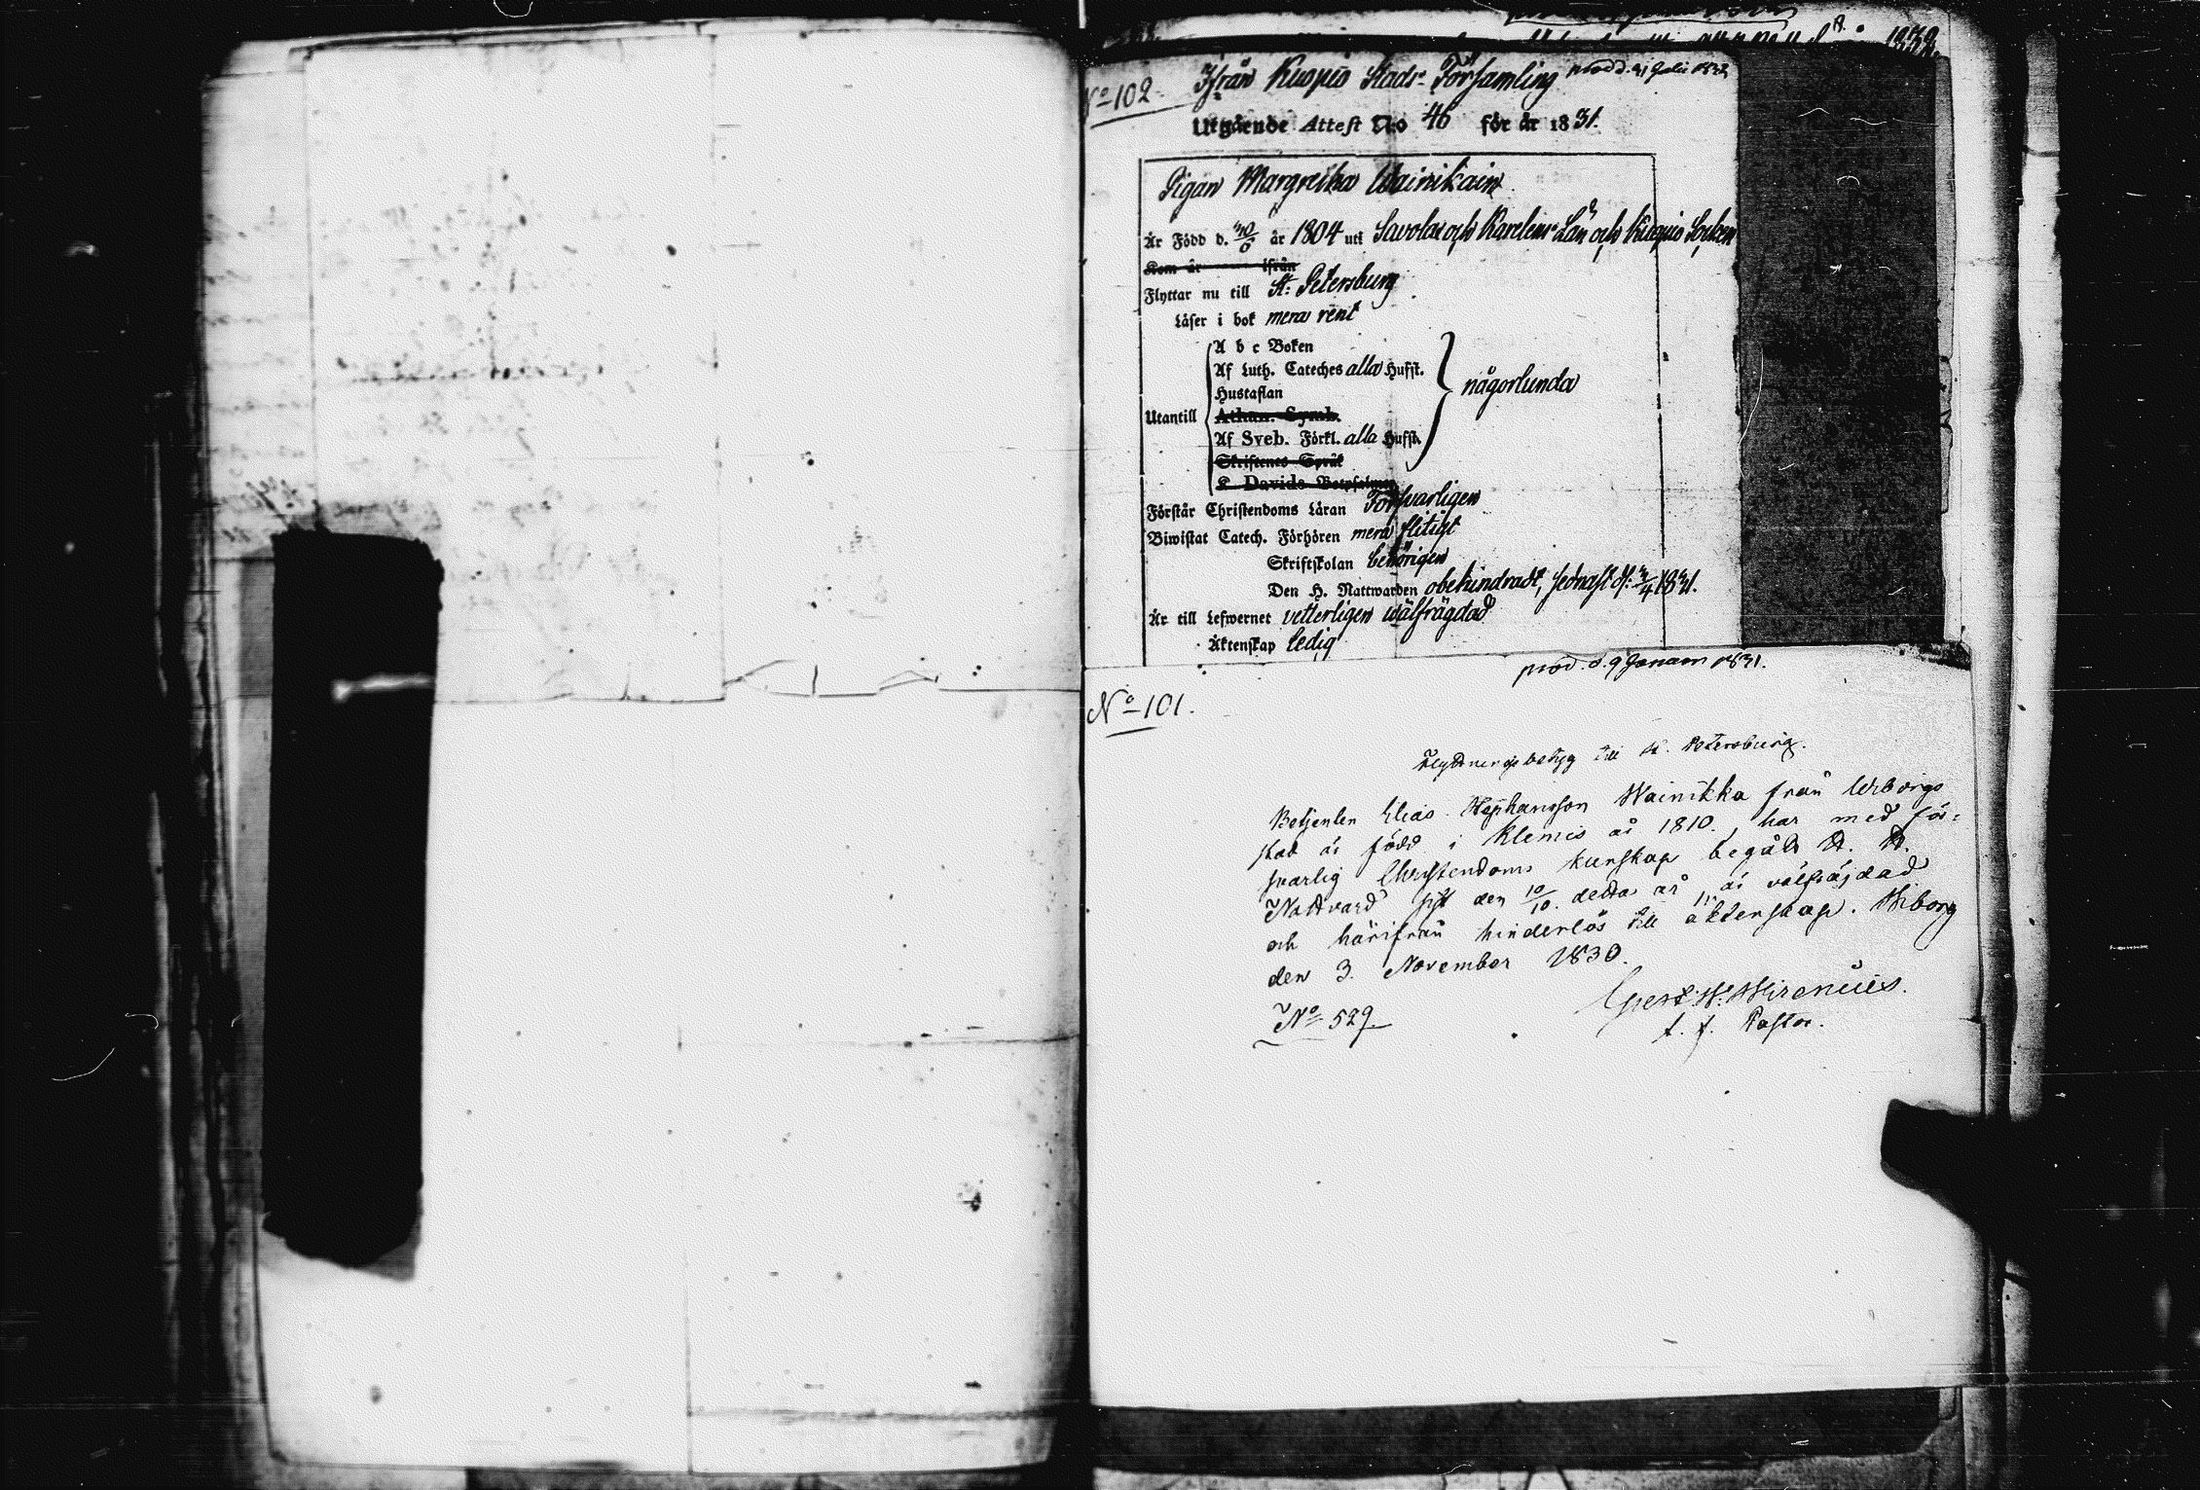 No 102
Ifrån Kuopio Stads Församling
prod d. 21 Julii 1832
Utgående Attest No 46 för år 1831.
Pigan Margretha Wainikain
Är Född d. år 1804 uti Savolax och Karelens Län och Kuopio Socken
Kom år ifrån
Flyttar nu till St: Petersburg
Läser i bok mera rent
A b c Boken
Af Luth. Cateches alla Hufst.
Hustaflan
någorlunda
Utantill
Athan. Symb.
Af Sveb. Förkl. alla Hufst.
Skriftenes Språk
K Davids Botpsalmer
Förstår Christendoms Läran Försvarligen
Biwistat Catech. Förhören mera flitigt
Skriftskolan behörigen
Den H. Nattwarden obehindradt, sednast d: 3/4 1831.
Är till Lefwernet vetterligen wälfrägdad
Äktenskap ledig
prod. d. 9 Januari 1831.
No 101.
Flyttningsbetyg till St. Petersburg.
Betjenten Elias Stephansson Wainikka från Wiborgs
stad är född i Klemis år 1810, har med för=
svarlig Christendoms kunskap begått H. H.
Nattvard sist den 10/10. detta år, är välfräjdad
och härifrån hinderlös till äktenskap. Wiborg
den 3. November 1830.
No 529
Wirenius.
t. f. Pastor.